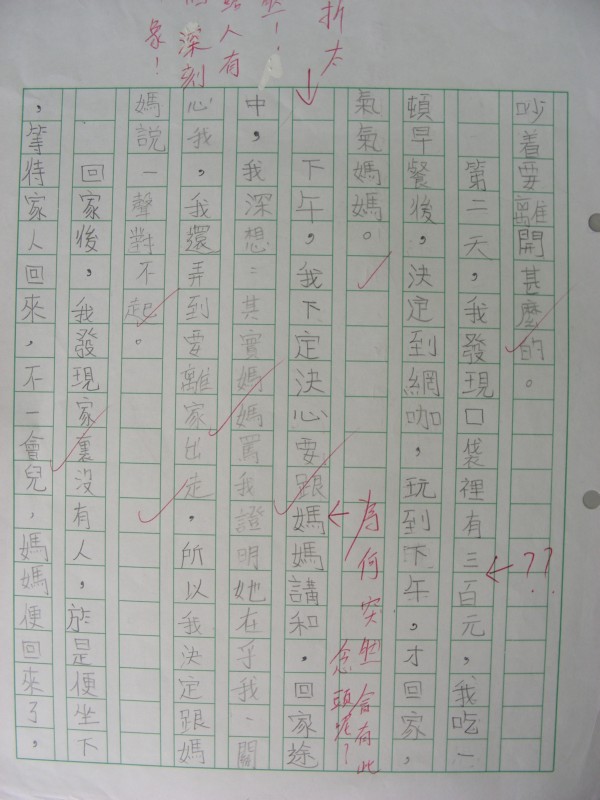 吵着要離開甚麼的。
第二天,我發現口袋裡有三百元,我吃一
??
頓早餐後,決定到網咖,玩到下午,才回家,
氣氣媽媽。
為何突然會有此
念頭呢?
折太
下午,我下定決心要跟媽媽講和,回家途
中,我深想:其實媽媽罵我證明她在乎我、關
人有
心我,我還弄到要離家出走,所以我決定跟媽
深刻
媽說一聲對不起。
象!
回家後,我發現家裏沒有人,於是便坐下
,等待家人回來,不一會兒,媽媽便回來了,